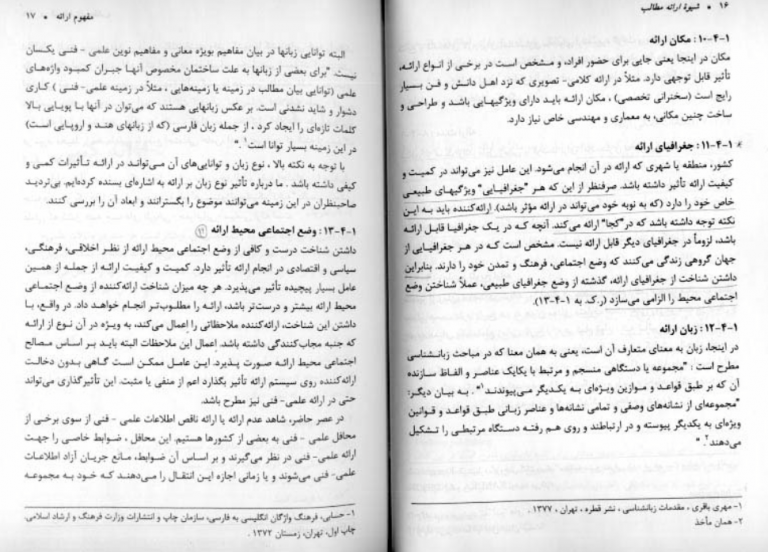 ۱۶ • شیوهٔ ارائه مطالب
۱-۴-۱۰: مکان ارائه
مکان در اینجا یعنی جایی برای حضور افراد، و مشخص است در برخی از انواع ارائه،
تأثیر قابل توجهی دارد. مثلاً در ارائه کلامی- تصویری که نزد اهل دانش و فن بسیار
رایج است (سخنرانی تخصصی) ، مکان ارائه باید دارای ویژگیهایی باشد و طراحی و
ساخت چنین مکانی، به معماری و مهندسی خاص نیاز دارد.
۱-۴-۱۱: جغرافیای ارائه
کشور، منطقه یا شهری که ارائه در آن انجام می‌شود. این عامل نیز می‌تواند در کمیت و
کیفیت ارائه تأثیر داشته باشد. صرفنظر از این که هر "جغرافیایی" ویژگیهای طبیعی
خاص خود را دارد (که به نوبه خود می‌تواند در ارائه مؤثر باشد)، ارائه‌کننده باید به این
نکته توجه داشته باشد که در"کجا" ارائه می‌کند. آنچه که در یک جغرافیا قابل ارائه
باشد، لزوماً در جغرافیای دیگر قابل ارائه نیست. مشخص است که در هر جغرافیایی از
جهان گروهی زندگی می‌کنند که وضع اجتماعی، فرهنگ و تمدن خود را دارند. بنابراین
داشتن شناخت از جغرافیای ارائه، گذشته از وضع جغرافیای طبیعی، عملاً شناختن وضع
اجتماعی محیط را الزامی می‌سازد (ر.ک. به ۱-۴-۱۳).
۱-۴-۱۲: زبان ارائه
در اینجا، زبان به معنای متعارف آن است، یعنی به همان معنا که در مباحث زبانشناسی
مطرح است : "مجموعه یا دستگاهی منسجم و مرتبط با یکایک عناصر و الفاظ سازنده
آن که بر طبق قواعد و موازین ویژه‌ای به یکدیگر می‌پیوندند ۱". به بیان دیگر:
"مجموعه‌ای از نشانه‌های وصفی و تمامی نشانه‌ها و عناصر زبانی طبق قواعد و قوانین
ویژه‌ای به یکدیگر پیوسته و در ارتباطند و روی هم رفته دستگاه مرتبطی را تشکیل
می‌دهند ۲."
۱- مهری باقری ، مقدمات زبانشناسی ، نشر قطره ، تهران ، ۱۳۷۷ .
۲- همان مأخذ
مفهوم ارائه • ۱۷
البته توانایی زبانها در بیان مفاهیم بویژه معانی و مفاهیم نوین علمی - فنی یکسان
نیست. "برای بعضی از زبانها به علت ساختمان مخصوص آنها جبران کمبود واژه‌های
علمی (توانایی بیان مطالب در زمینه یا زمینه‌هایی ، مثلاً در زمینه علمی- فنی ) کاری
دشوار و شاید نشدنی است. بر عکس زبانهایی هستند که می‌توان در آنها با پویایی بالا
کلمات تازه‌ای را ایجاد کرد ، از جمله زبان فارسی (که از زبانهای هند و اروپایی است)
در این زمینه بسیار توانا است ۱."
با توجه به نکته بالا ، نوع زبان و توانایی‌های آن می‌تواند در ارائه تأثیرات کمی و
کیفی داشته باشد . ما درباره تأثیر نوع زبان بر ارائه به اشاره‌ای بسنده کرده‌ایم. بی‌تردید
صاحبنظران در این زمینه می‌توانند موضوع را بگسترانند و ابعاد آن را بررسی کنند.
۱-۴-۱۳: وضع اجتماعی محیط ارائه
داشتن شناخت درست و کافی از وضع اجتماعی محیط ارائه از نظر اخلاقی، فرهنگی،
سیاسی و اقتصادی در انجام ارائه تأثیر دارد. کمیت و کیفیت ارائه از جمله از همین
عامل بسیار پیچیده تأثیر می‌پذیرد. هر چه میزان شناخت ارائه‌کننده از وضع اجتماعی
محیط ارائه بیشتر و درست‌تر باشد، ارائه را مطلوب‌تر انجام خواهد داد. در واقع، با
داشتن این شناخت، ارائه‌کننده ملاحظاتی را اعمال می‌کند، به ویژه در آن نوع از ارائه
که جنبه مجاب‌کنندگی داشته باشد. اعمال این ملاحظات البته باید بر اساس مصالح
اجتماعی محیط ارائه صورت پذیرد. این عامل ممکن است گاهی بدون دخالت
ارائه‌کننده روی سیستم ارائه تأثیر بگذارد اعم از منفی یا مثبت. این تأثیرگذاری می‌تواند
حتی در ارائه علمی- فنی نیز مطرح باشد.
در عصر حاضر، شاهد عدم ارائه یا ارائه ناقص اطلاعات علمی - فنی از سوی برخی از
محافل علمی - فنی به بعضی از کشورها هستیم. این محافل ، ضوابط خاصی را جهت
ارائه علمی- فنی در نظر می‌گیرند و بر اساس آن ضوابط، مانع جریان آزاد اطلاعات
علمی- فنی می‌شوند و یا زمانی اجازه این انتقال را می‌دهند که خود به مجموعه
۱- حسابی، فرهنگ واژگان انگلیسی به فارسی، سازمان چاپ و انتشارات وزارت فرهنگ و ارشاد اسلامی.
چاپ اول، تهران، زمستان ۱۳۷۲ .